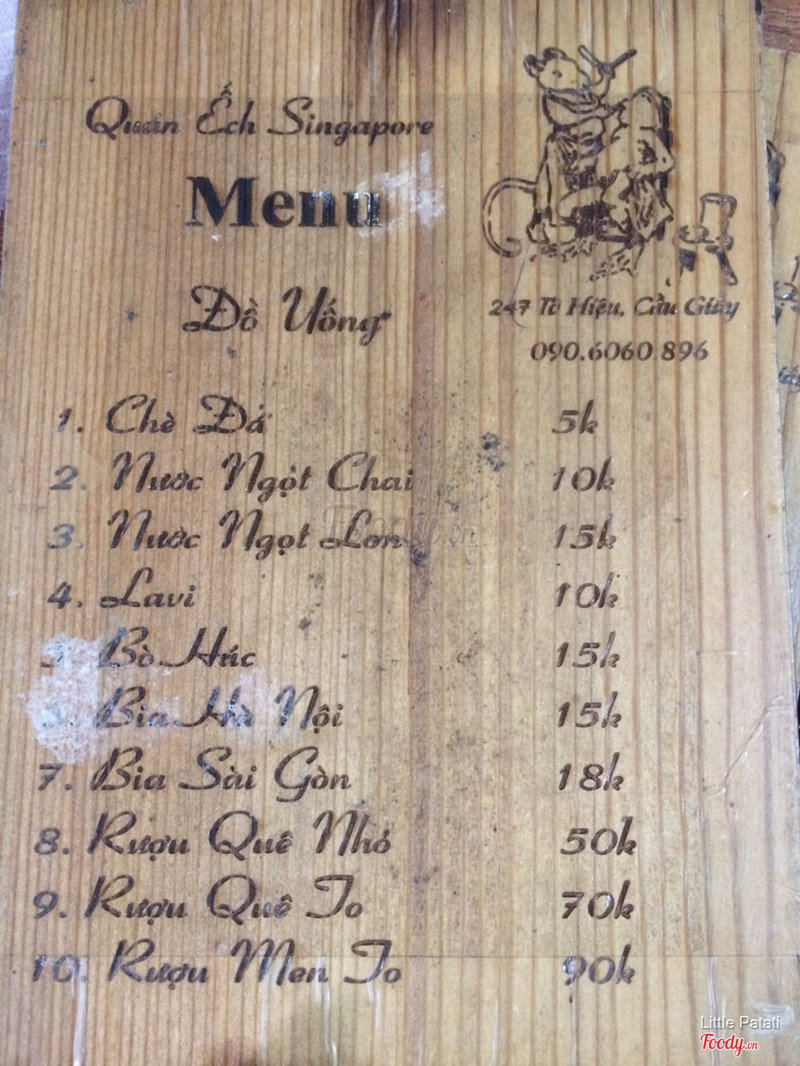 Quán Ếch Singapore
Menu
Đồ Uống
247 Tô Hiệu, Cầu Giấy
090.6060.896
1. Chè Đá 5k
2. Nước Ngọt Chai 10k
3. Nước Ngọt Lon 15k
4. Lavi 10k
5. Bò Húc 15k
6. Bia Hà Nội 15k
7. Bia Sài Gòn 18k
8. Rượu Quê Nhỏ 50k
9. Rượu Quê To 70k
10. Rượu Men To 90k
Foody.vn
Little Patati
Foody.vn